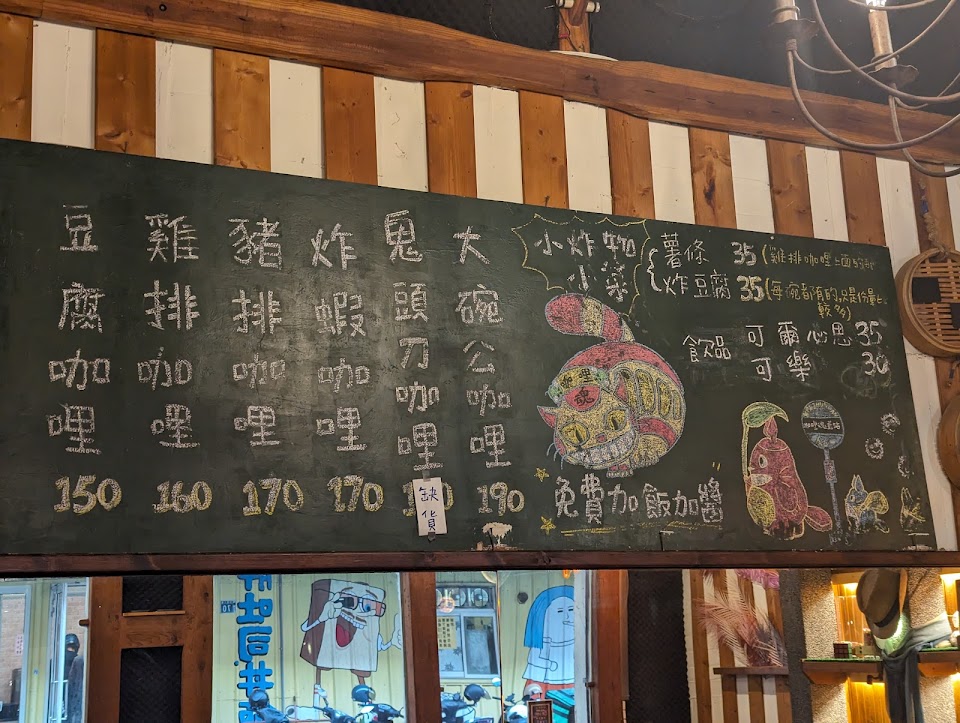 豆腐咖哩 150
雞排咖哩 160
豬排咖哩 170
炸蝦咖哩 170
鬼頭刀咖哩
缺貨
大碗公咖哩 190
小炸物
小菜
薯條 35 (雞排咖哩上面的
炸豆腐 35 (每碗都有的,只是份量比
較多)
飲品 可爾必思 35
可樂 30
咖哩
魂
免費加飯加醬